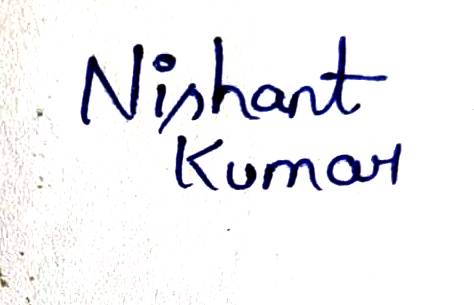 Nishant
Kumar